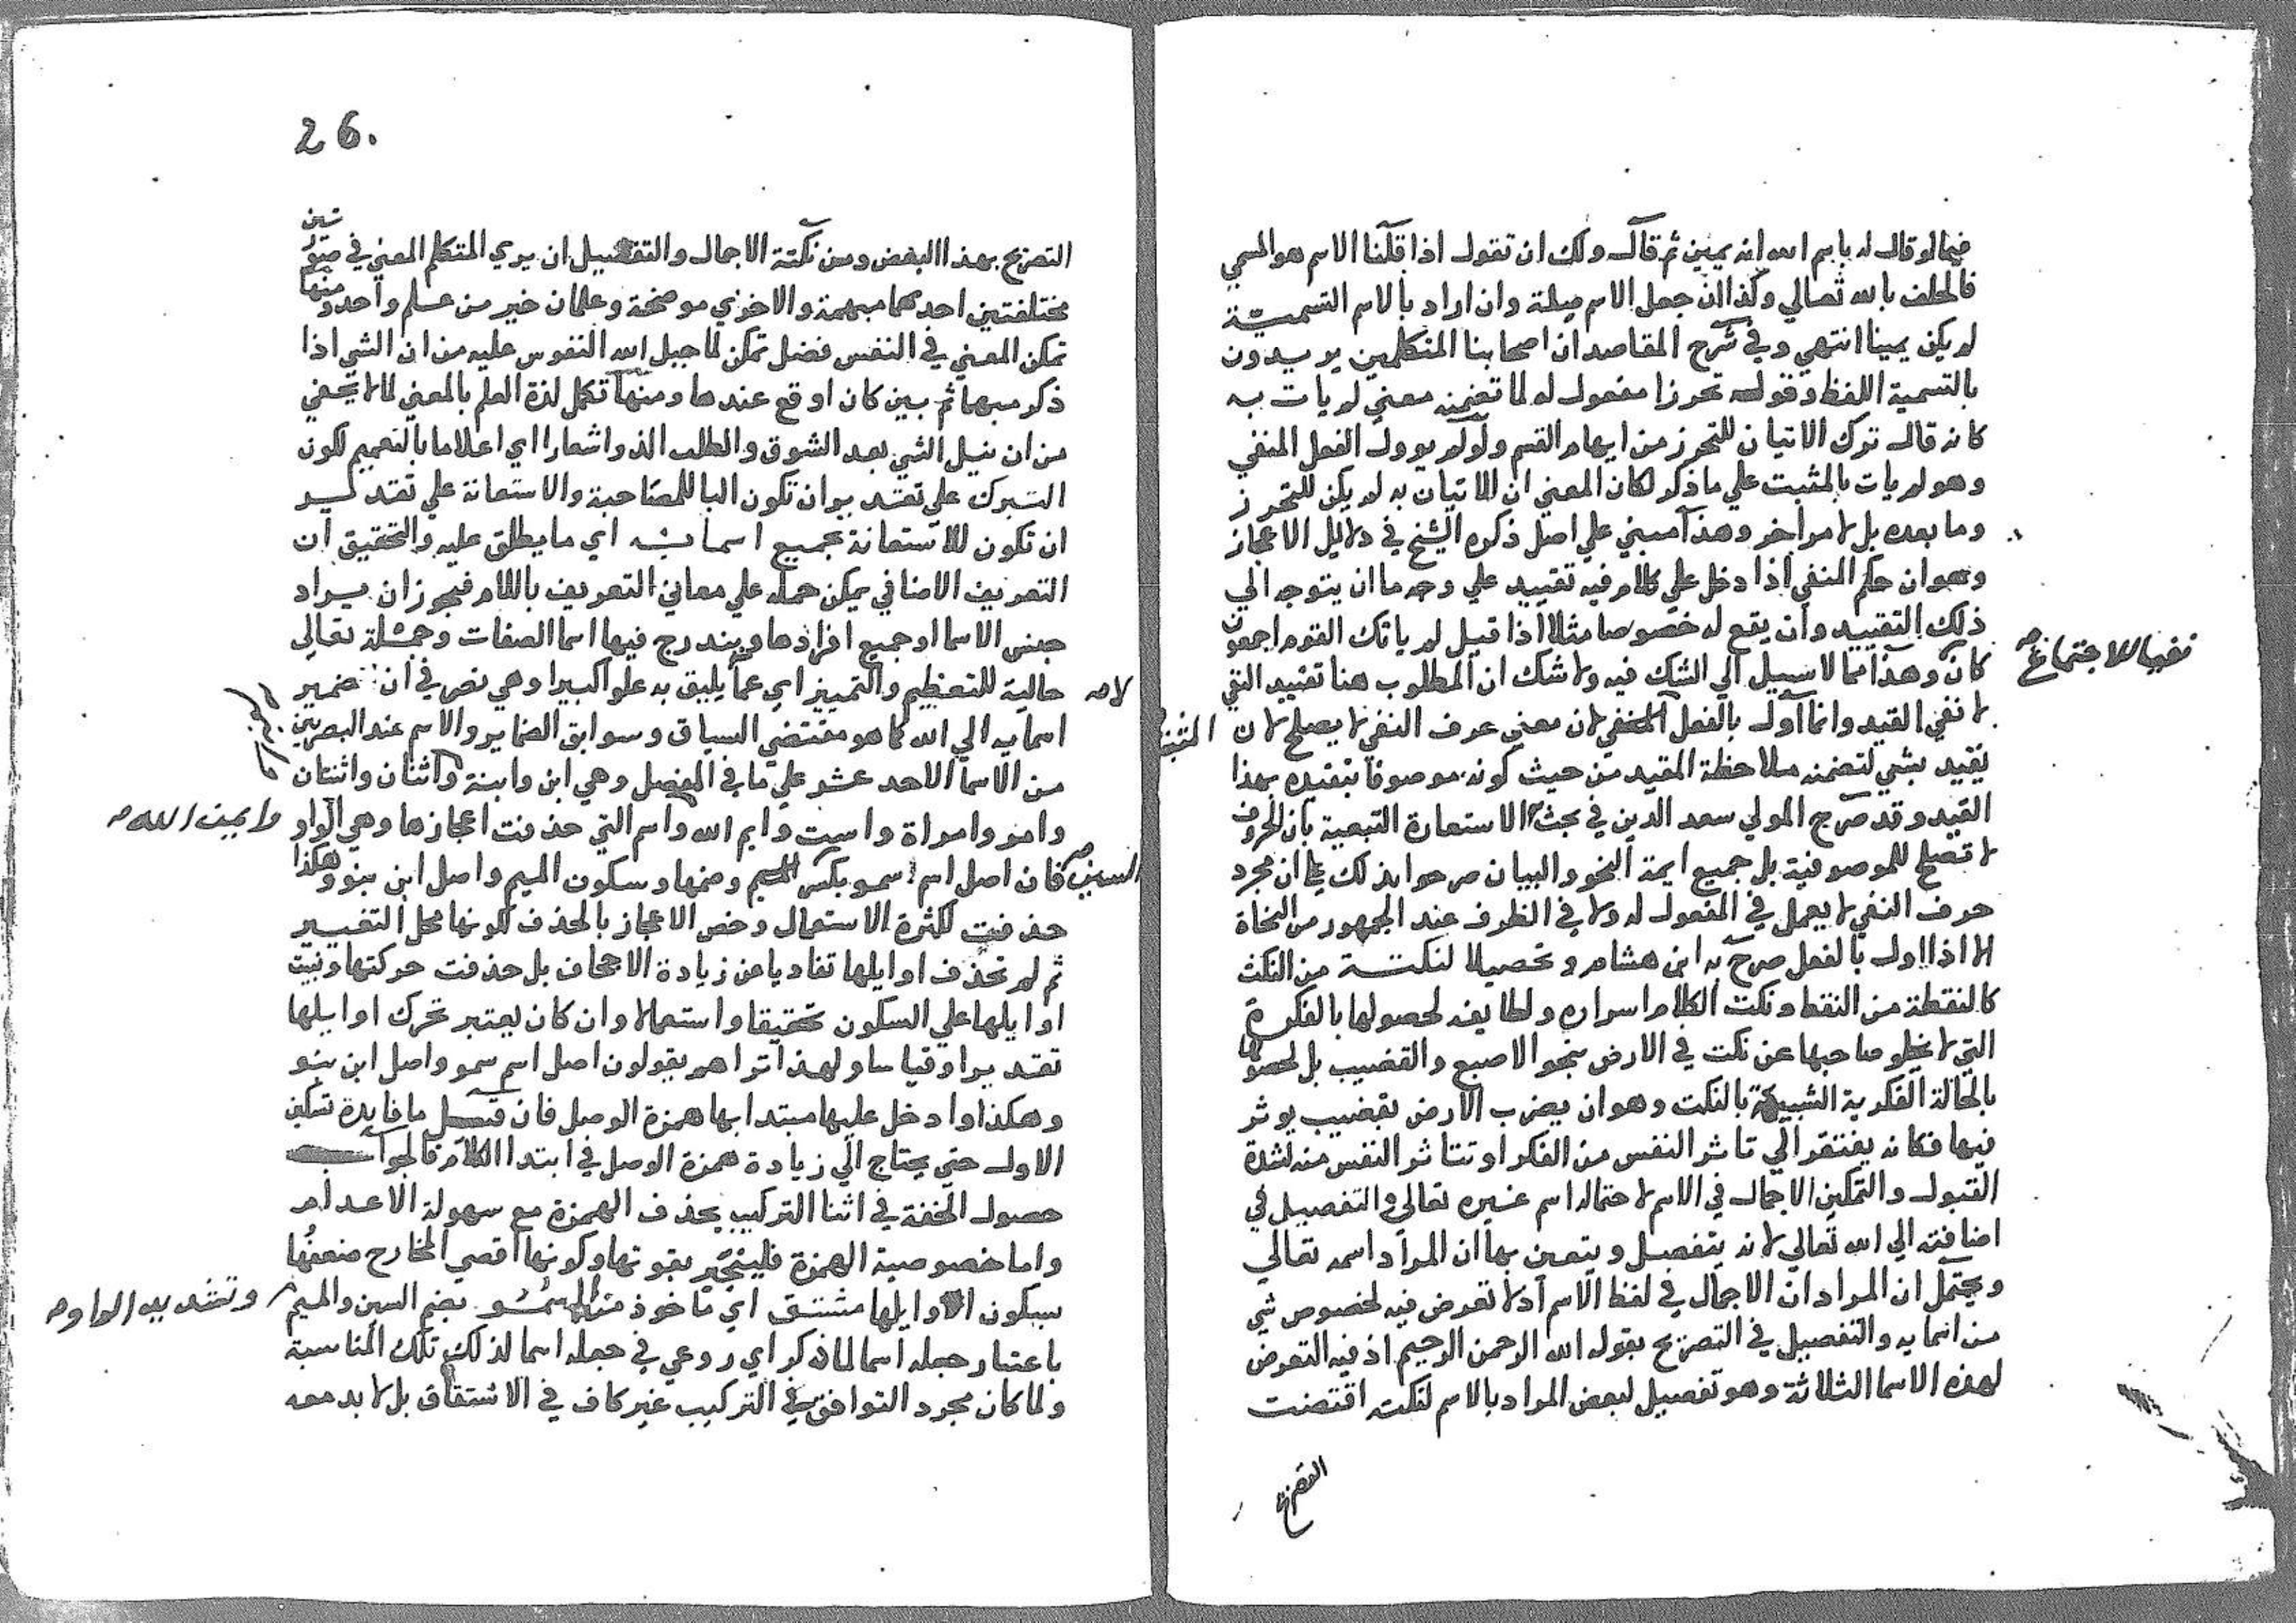 فيما لو قال له باسم الله انه يمين ثم قال ولك ان تقول اذا قلنا الاسم هو المسمي
فالحلف بالله تعالي وكذا ان جعل الاسم صلة وان اراد بالاسم التسمية
لم يكن يمينا انتهي وفي شرح المقاصد ان اصحابنا المتكلمين يريدون
بالتسمية اللفظ وقوله تحرزا مفعول له لما تضمنه معني لم يات به
كانه قال ترك الاتيان للتحرز من ايهام القسم ولو لم يوول الفعل المنفي
وهو لم يات بالمثبت علي ما ذكر لكان المعني ان الاتيان به لم يكن للتحرز
وما بعده بل لامر اخر وهذا مبني علي اصل ذكره الشيخ في دلايل الاعجاز
وهو ان حكم النفي اذا دخل علي كلام فيه تقييد علي وجه ما ان يتوجه الي
ذلك التقييد وان يقع له خصوصا مثلا اذا قيل لم ياتك القوم اجمعون
كان نفيا للاجتماع وهذا مما لا سبيل الي الشك فيه ولا شك ان المطلوب هنا تقييد النفي
لا نفي القيد وانما اول بالفعل المنفي لان معني حرف النفي لا يصلح لان
يقيد بشي لتضمنه ملاحظة المقيد من حيث كونه موصوفا بتقيده بهذا
القيد وقد صرح المولي سعد الدين في بحث الاستعارة التبعية بان الحروف
لا تصلح للموصوفية بل جميع ايمة النحو والبيان صرحوا بذلك علي ان مجرد
حرف النفي لا يعمل في المفعول له ولا في الظرف عند الجمهور من النحاة
الا اذا اول بالفعل صرح به ابن هشام وتحصيلا لنكتة من النكت
كالنقطة من النقط ونكت الكلام اسراره ولطايفه لحصولها بالفكرة
التي لا يخلو صاحبها عن نكت في الارض بنحو الاصبع والقضيب بل لحصولها
بالحالة الفكرية الشبيهة بالنكت وهو ان يضرب الارض بقضيب يوثر
فيها فكانه يفتقر الي تاثر النفس من الفكر او تتاثر النفس منه لشدة
القبول والتمكين الاجمال في الاسم لاحتماله اسم غيره تعالي والتفصيل في
اضافته الي الله تعالي لانه يتفصل ويتعين بها ان المراد اسمه تعالي
ويحتمل ان المراد ان الاجمال في لفظ الاسم اذ لا تعرض فيه لخصوص شي
من اسمايه والتفصيل في التصريح بقوله الله الرحمن الرحيم اذ فيه التعرض
لهذه الاسما الثلاثة وهو تفصيل لبعض المراد بالاسم لنكته اقتضت
التصريح
26.
التصريح بهذا البعض ومن نكتة الاجمال والتفصيل ان يري المتكلم المعني في صورتين
مختلفتين احدهما مبهمة والاخري موضحة وعلمان خير من علم واحد ومنها
تمكن المعني في النفس فضل تمكن لما جبل الله النفوس عليه من ان الشي اذا
ذكر مبهما ثم بين كان اوقع عندها ومنها تكمل لذة العلم بالمعني لما لا يخفي
من ان نيل الشي بعد الشوق والطلب الذ واشعارا اي اعلاما بالتعميم لكون
التبرك علي تقدير ان تكون البا للمصاحبة والاستعانة علي تقدير
ان تكون للاستعانة بجميع اسمايه اي ما يطلق عليه والتحقيق ان
التعريف الاضافي يمكن حمله علي معاني التعريف باللام فيجوز ان يراد
جنس الاسما او جميع افرادها ويندرج فيها اسما الصفات وجملة تعالي
حالية للتعظيم والتمييز اي عما لا يليق به علوا كبيرا وهي نص في ان ضمير
اسمايه الي الله كما هو مقتضي السياق وسوابق الضماير والاسم عند البصريين
من الاسما الاحد عشر علي ما في المفصل وهي ابن وابنة واثنان واثنتان
وامرو وامراة واست وايم الله وايمن الله واسم التي حذفت اعجازها وهي الواو
فان اصل اسم سمو بكسر السين وضمها وسكون الميم واصل ابن بنو وهكذا
حذفت لكثرة الاستعمال وخص الاعجاز بالحذف لكونها محل التغيير
ثم لم تحذف اوايلها تفاديا عن زيادة الاجحاف بل حذفت حركتها وبنيت
اوايلها علي السكون تحقيقا واستعمالا وان كان يعتبر تحرك اوايلها
تقديرا وقياسا ولهذا تراهم يقولون اصل اسم سمو واصل ابن بنو
وهكذا وادخل عليها مبتدا بها همزة الوصل فان قيل ما فايدة تسكين
الاول حتي يحتاج الي زيادة همزة الوصل في ابتدا الكلام فالجواب
حصول الخفة في اثنا التركيب بحذف الهمزة مع سهولة الاعدام
واما خصوصية الهمزة فلينجبر بقوتها وكونها اقصي المخارج ضعفها
بسكون اوايلها مشتق اي ماخوذ من السمو بضم السين والميم وتشديد الواو
باعتبار جعله اسما لما ذكر اي روعي في جعله اسما لذلك تلك المناسبة
ولما كان مجرد التوافق في التركيب غير كاف في الاشتقاق بل لا بد معه